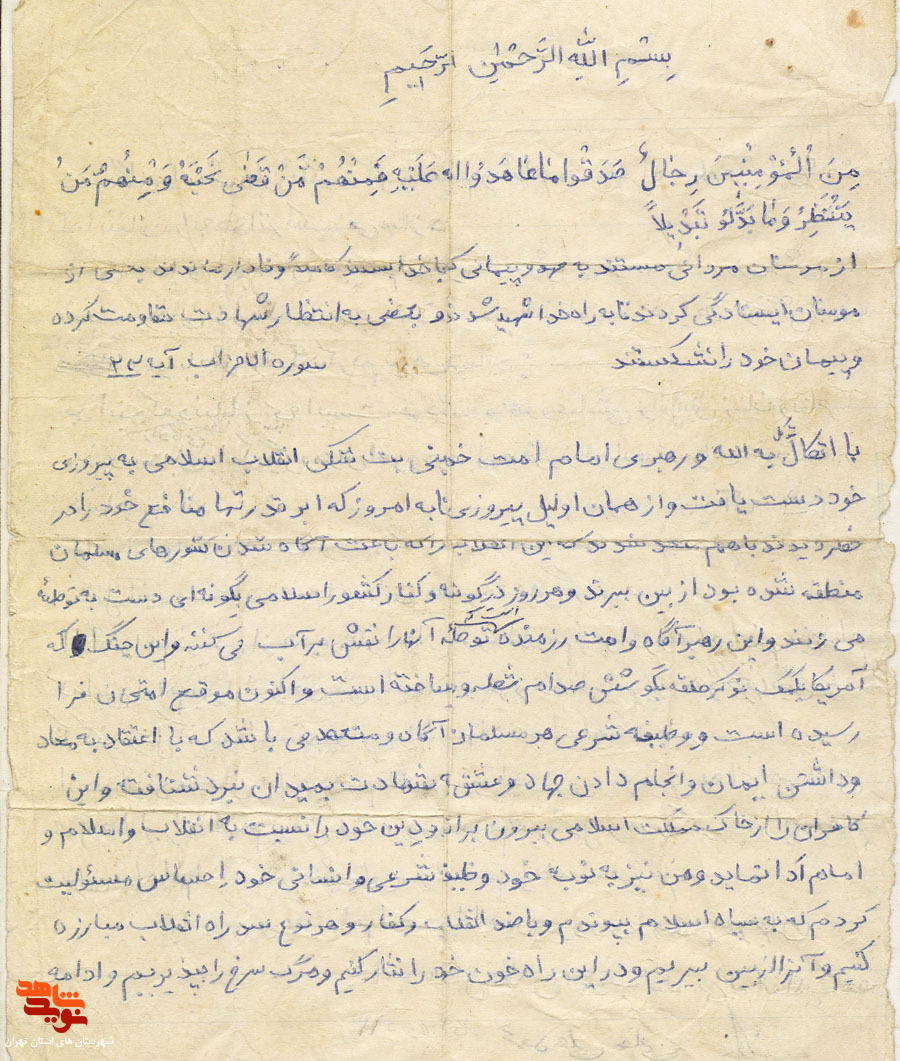 بِسْمِ اللهِ الرَّحْمٰنِ الرَّحيمِ
مِنَ الْمُؤْمِنينَ رِجالٌ صَدَقُوا ما عاهَدُوا الله عَلَيْهِ فَمِنْهُمْ مَنْ قَضٰى نَحْبَهُ وَ مِنْهُمْ مَنْ
يَنْتَظِرُ وَ ما بَدَّلُو تَبْديلاً
از مومنان مردانی هستند به عهد و پیمانی که با خدا بستند کاملاً وفادار ماندند بعضی از
مومنان ایستادگی کردند تا به راه خدا شهید شدند و بعضی به انتظار شهادت مقاومت کرده
و پیمان خود را نشکستند سوره الاحزاب آیه ۲۳
با اتکال به الله و رهبری امام امت خمینی بت شکن انقلاب اسلامی به پیروزی
خود دست یافت و از همان اوایل پیروزی تا به امروز که ابر قدرتها منافع خود را در
خطر دیدند باهم متحد شدند که این انقلاب را که باعث آگاه شدن کشورهای مسلمان
منطقه شده بود از بین ببرند و هر روز در گوشه و کنار کشور اسلامی بگونه‌ای دست به توطئه
می زنند و این رهبر آگاه و امت رزمنده است که توطئه آنها را نقش بر آب می کنند و این جنگ که
آمریکا بکمک نوکر حلقه بگوشش صدام شعله ور ساخته است و اکنون موقع امتحان فرا
رسیده است و وظیفه شرعی هر مسلمان آگاه و متعهد می باشد که با اعتقاد به معاد
و داشتن ایمان و انجام دادن جهاد و عشق به شهادت بمیدان نبرد شتافته و این
کافران را از خاک مملکت اسلامی بیرون براند و دین خود را نسبت به انقلاب و اسلام و
امام ادا نماید و من نیز به نوبه خود وظیفه شرعی و انسانی خود احساس مسئولیت
کردم که به سپاه اسلام بپیوندم و با ضد انقلاب و کفار و هر نوع سد راه انقلاب مبارزه
کنیم و آنرا از بین ببریم و در این راه خون خود را نثار کنیم و مرگ سرخ را بپذیریم و ادامه
شاهد
نوید
شهرستان های استان تهران